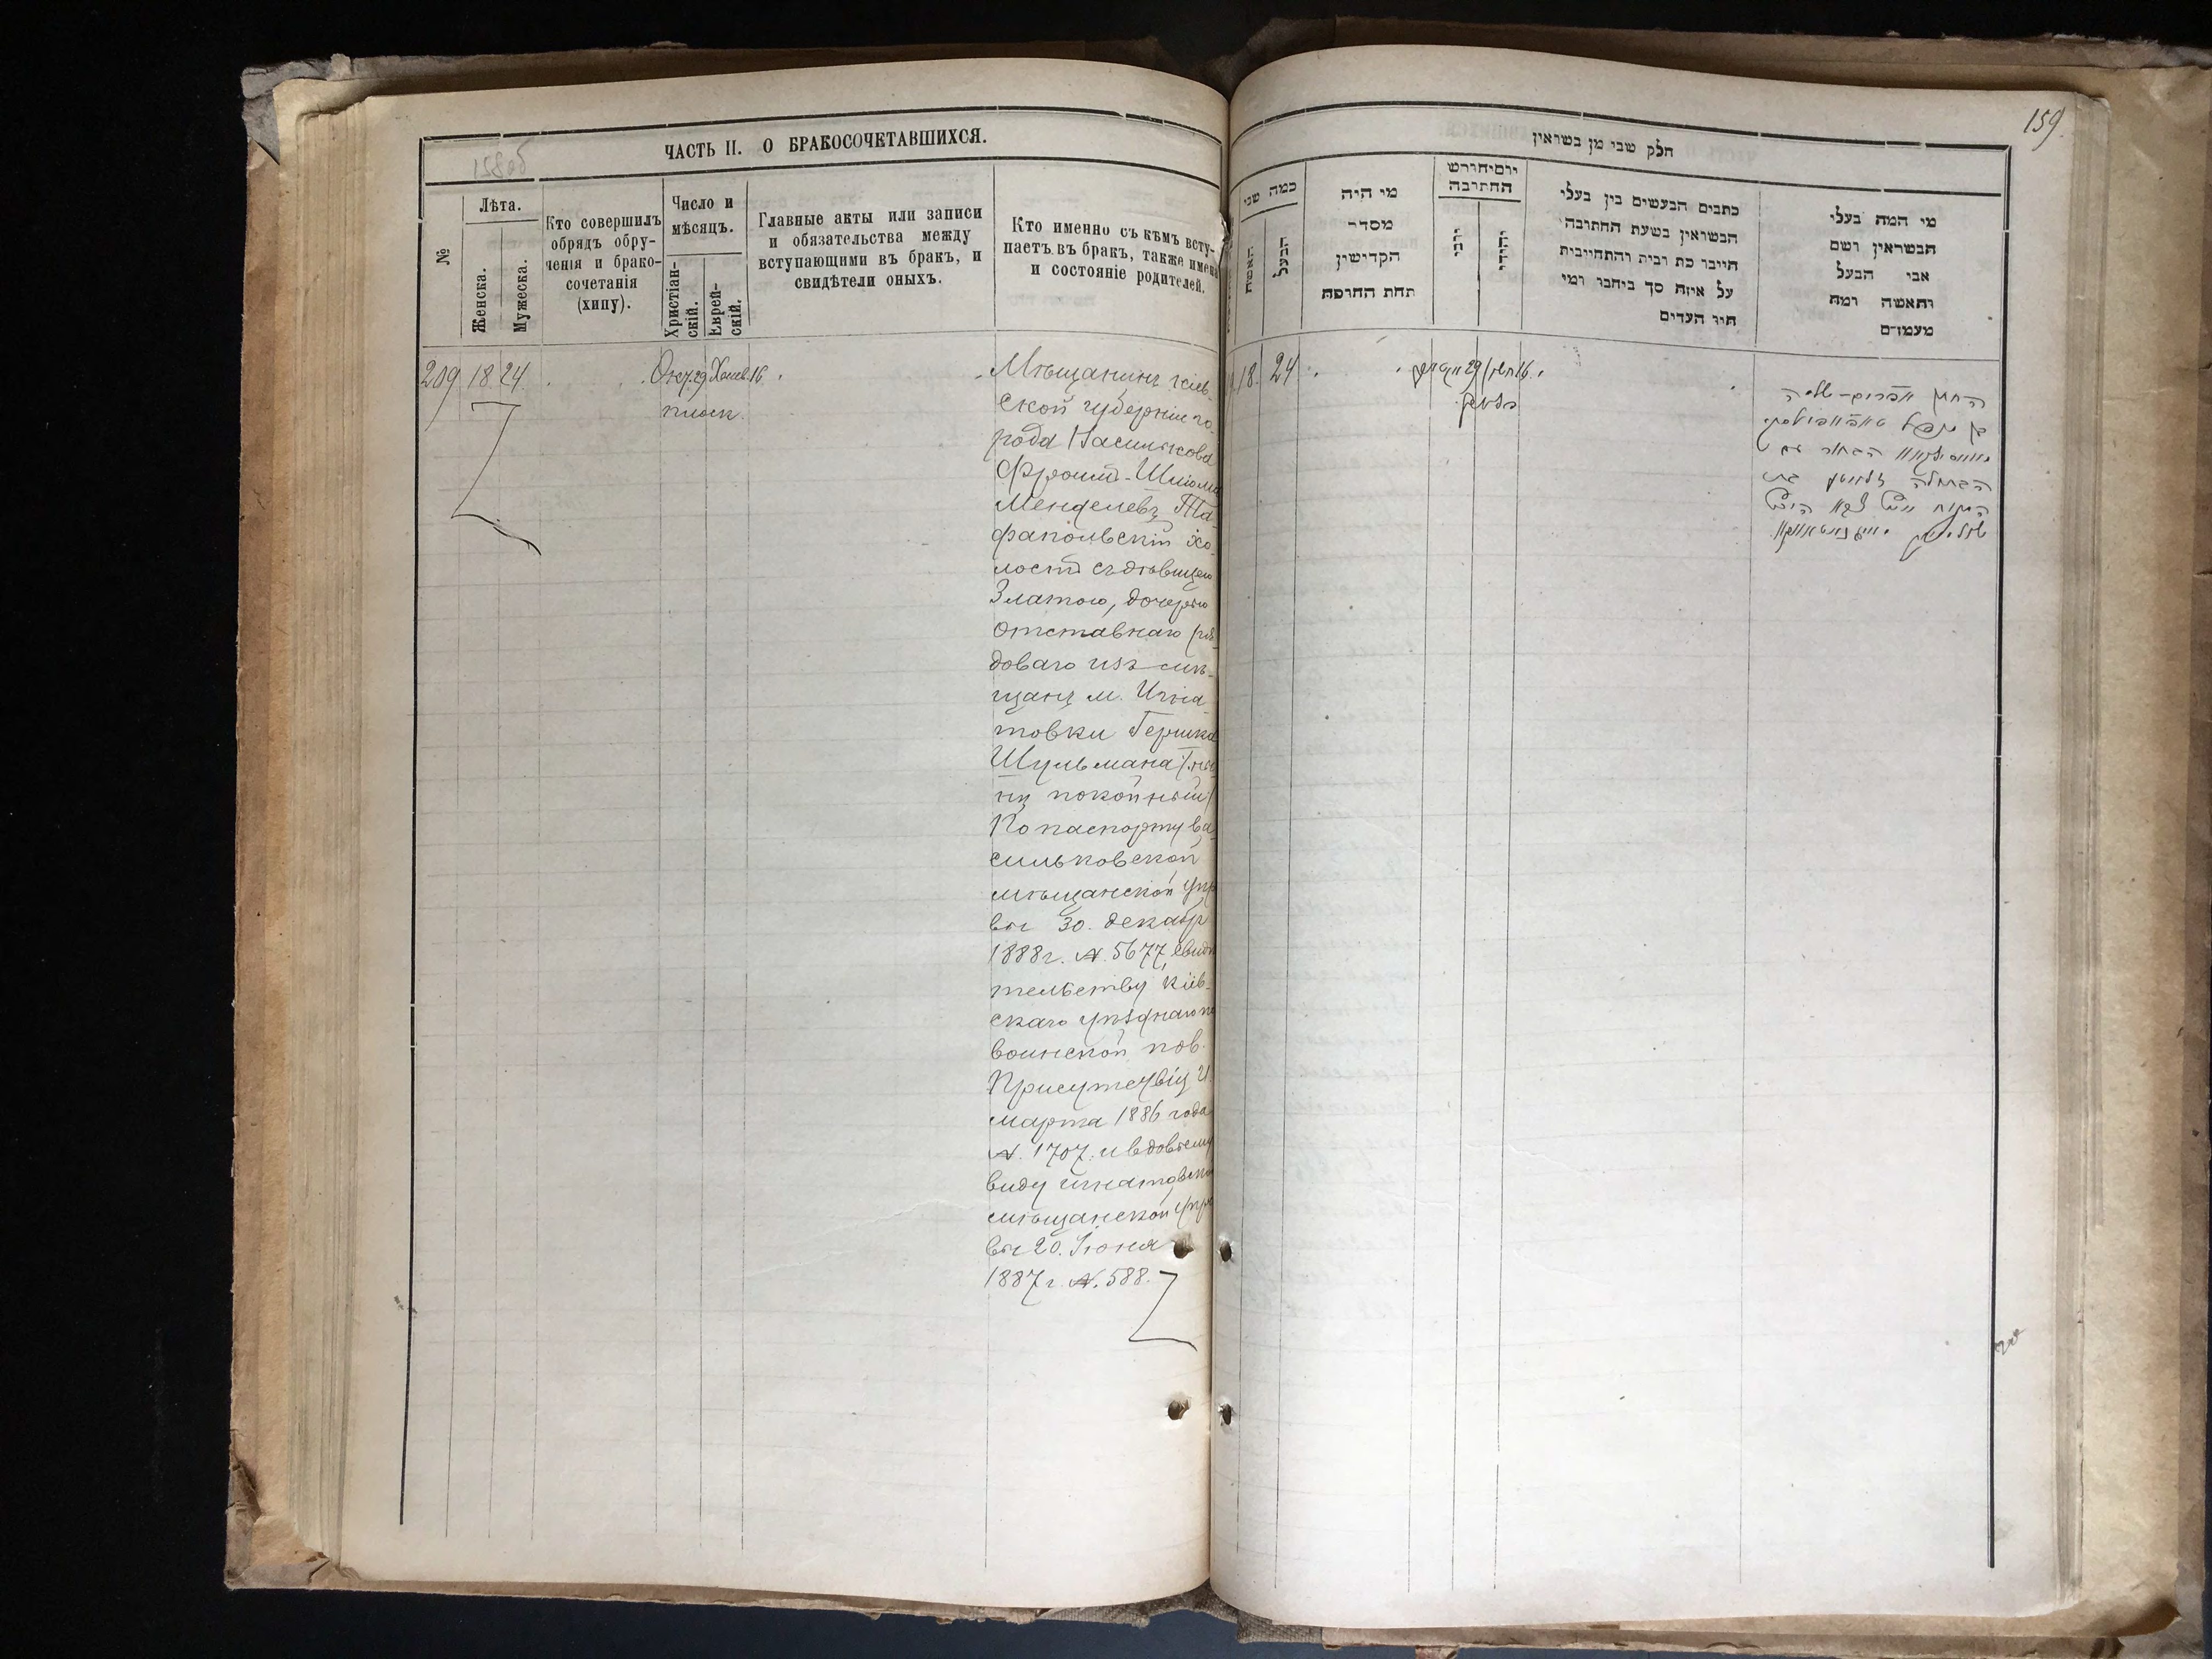 158об
ЧАСТЬ II. О БРАКОСОЧЕТАВШИХСЯ.
№
Лѣта.
Женска.
Мужеска.
Кто совершилъ
обрядъ обру-
ченія и брако-
сочетанія
(хипу).
Число и
мѣсяцъ.
Христіан-
скій.
Еврей-
скій.
Главные акты или записи
и обязательства между
вступающими въ бракъ, и
свидѣтели оныхъ.
Кто именно съ кѣмъ всту-
паетъ въ бракъ, также имена
и состояніе родителей.
209 18 24 Окт. 29 Хешв. 16
Мѣщанинъ кіев-
ской губерніи го-
рода Василькова
Шлiома
Менделевъ Та-
рапольскій хо-
лостъ съ дѣвицею
Златою, дочерью
отставнаго ря-
доваго изъ мѣ-
щанъ м. Игна-
товки Гершка
Шульмана (ны-
нѣ покойный)
По паспорту ва-
сильковской
мѣщанской упр
вы 30. декабр
1888г. №. 5677, свидѣ
тельству кіев-
скаго уѣзднаго по
воинской пов.
Присутствія
марта 1886 года
№. 1707. и вдовьему
виду игнатовской
мѣщанской упра
вы 20. Іюня
1887г. №. 588.
159.
חלק שני מן בשראין
כמה שני
האשה
הבעל
מי היה
מסדר
הקדישין
תחת החופה
יום יחודש
החתונה
יוני
יהודי
כתבים הנעשים בין בעלי
הנשואין בשעת החתונה
היינו כת ובית והתחייבות
על איזה סך ביחבר ומי
היו העדים
מי המה בעלי
הנשואין ושם
אבי הבעל
והאשה ומה
מעמדם
18. 24 29 16
החתן אפרים-שלמה
בן מענדל
הבחור עם
הבתולה זלאטע בת
המנוח הירש
שולמאן